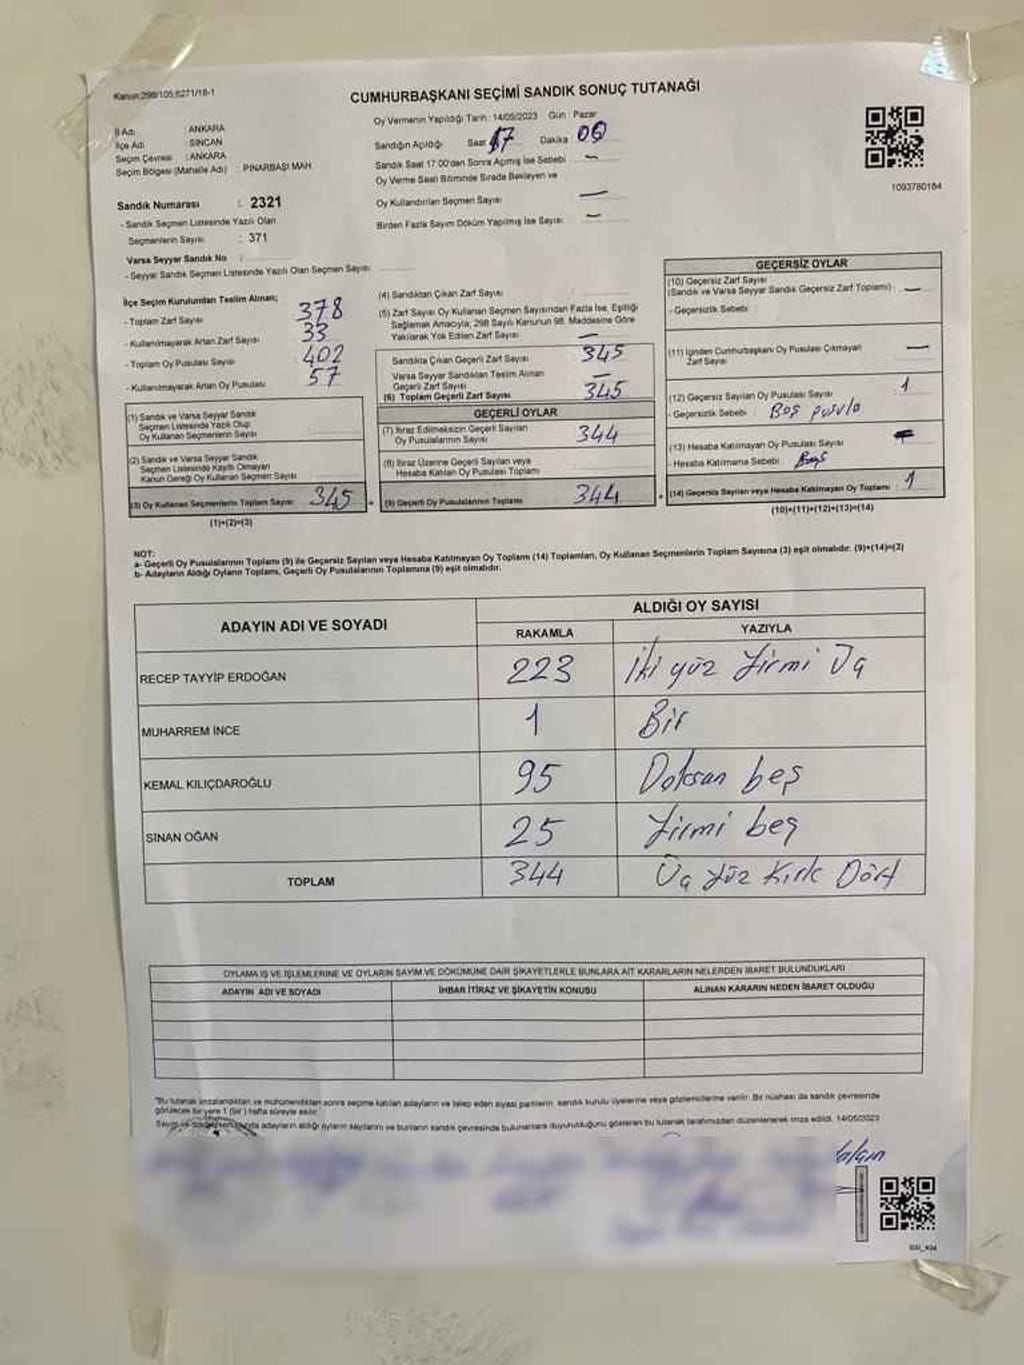 Kanun:298/105;6271/18-1
CUMHURBAŞKANI SEÇİMİ SANDIK SONUÇ TUTANAĞI
İl Adı : ANKARA
İlçe Adı : SİNCAN
Seçim Çevresi : ANKARA
Seçim Bölgesi (Mahalle Adı) PINARBAŞI MAH.
Oy Vermenin Yapıldığı Tarih : 14/05/2023 Gün : Pazar
Sandığın Açıldığı Saat 17 Dakika : 06
Sandık Saat 17:00'den Sonra Açılmış İse Sebebi : –
Oy Verme Saati Bitiminde Sırada Bekleyen ve
Oy Kullandırılan Seçmen Sayısı –
Birden Fazla Sayım Döküm Yapılmış İse Sayısı –
1093780184
Sandık Numarası : 2321
- Sandık Seçmen Listesinde Yazılı Olan
Seçmenlerin Sayısı : 371
Varsa Seyyar Sandık No :
- Seyyar Sandık Seçmen Listesinde Yazılı Olan Seçmen Sayısı
İlçe Seçim Kurulundan Teslim Alınan;
- Toplam Zarf Sayısı 378
- Kullanılmayarak Artan Zarf Sayısı 33
- Toplam Oy Pusulası Sayısı 402
- Kullanılmayarak Artan Oy Pusulası 57
(1) Sandık ve Varsa Seyyar Sandık
Seçmen Listesinde Yazılı Olup
Oy Kullanan Seçmenlerin Sayısı
(2) Sandık ve Varsa Seyyar Sandık
Seçmen Listesinde Kayıtlı Olmayan
Kanun Gereği Oy Kullanan Seçmen Sayısı
(3) Oy Kullanan Seçmenlerin Toplam Sayısı 345
(1)+(2)=(3)
(4) Sandıktan Çıkan Zarf Sayısı
(5) Zarf Sayısı Oy Kullanan Seçmen Sayısından Fazla İse, Eşitliği
Sağlamak Amacıyla; 298 Sayılı Kanunun 98. Maddesine Göre
Yakılarak Yok Edilen Zarf Sayısı –
Sandıkta Çıkan Geçerli Zarf Sayısı 345
Varsa Seyyar Sandıktan Teslim Alınan
Geçerli Zarf Sayısı –
(6) Toplam Geçerli Zarf Sayısı 345
GEÇERLİ OYLAR
(7) İtiraz Edilmeksizin Geçerli Sayılan
Oy Pusulalarının Sayısı 344
(8) İtiraz Üzerine Geçerli Sayılan veya
Hesaba Katılan Oy Pusulası Toplamı
(9) Geçerli Oy Pusulalarının Toplamı 344
GEÇERSİZ OYLAR
(10) Geçersiz Zarf Sayısı
(Sandık ve Varsa Seyyar Sandık Geçersiz Zarf Toplamı) : –
- Geçersizlik Sebebi :
(11) İçinden Cumhurbaşkanı Oy Pusulası Çıkmayan
Zarf Sayısı –
(12) Geçersiz Sayılan Oy Pusulası Sayısı 1
- Geçersizlik Sebebi : Boş pusula
(13) Hesaba Katılmayan Oy Pusulası Sayısı
- Hesaba Katılmama Sebebi
(14) Geçersiz Sayılan veya Hesaba Katılmayan Oy Toplamı : 1
(10)+(11)+(12)+(13)=(14)
NOT:
a- Geçerli Oy Pusulalarının Toplamı (9) ile Geçersiz Sayılan veya Hesaba Katılmayan Oy Toplamı (14) Toplamları, Oy Kullanan Seçmenlerin Toplam Sayısına (3) eşit olmalıdır. (9)+(14)=(3)
b- Adayların Aldığı Oyların Toplamı, Geçerli Oy Pusulalarının Toplamına (9) eşit olmalıdır.
ADAYIN ADI VE SOYADI ALDIĞI OY SAYISI
RAKAMLA YAZIYLA
RECEP TAYYİP ERDOĞAN 223 İki yüz Yirmi Üç
MUHARREM İNCE 1 Bir
KEMAL KILIÇDAROĞLU 95 Doksan beş
SİNAN OĞAN 25 Yirmi beş
TOPLAM 344 Üç Yüz Kırk Dört
OYLAMA İŞ VE İŞLEMLERİNE VE OYLARIN SAYIM VE DÖKÜMÜNE DAİR ŞİKAYETLERLE BUNLARA AİT KARARLARIN NELERDEN İBARET BULUNDUKLARI
ADAYIN ADI VE SOYADI İHBAR İTİRAZ VE ŞİKAYETİN KONUSU ALINAN KARARIN NEDEN İBARET OLDUĞU
"Bu tutanak imzalandıktan ve mühürlendikten sonra seçime katılan adayların ve talep eden siyasi partilerin, sandık kurulu üyelerine veya gözlemcilerine verilir. Bir nüshası da sandık çevresinde
görülecek bir yere 1 (bir) hafta süreyle asılır."
adayların aldığı oyların sayılarını ve bunların sandık çevresinde bulunanlara duyurulduğunu gösteren bu tutanak tarafımızdan düzenlenerek imza edildi. 14/05/2023